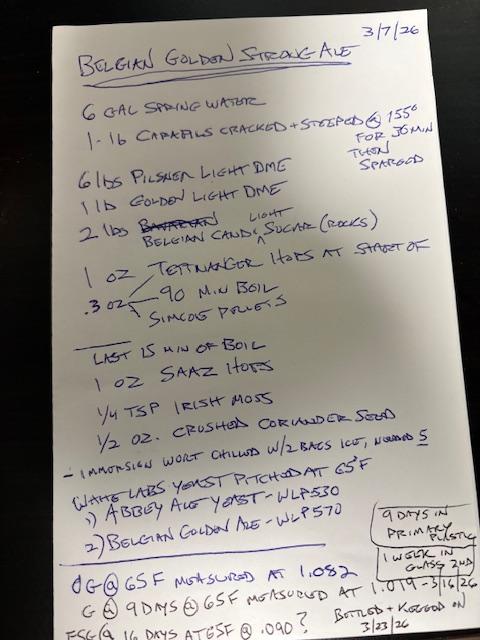 3/7/26
BELGIAN GOLDEN STRONG ALE
6 GAL SPRING WATER
1-lb CARAFILS CRACKED + STEEPED @ 155°
FOR 30 MIN
THEN
SPARGED
6 lbs PILSNER LIGHT DME
1 lb GOLDEN LIGHT DME
2 lbs BAVARIAN
LIGHT
BELGIAN CANDI SUGAR (ROCKS)
1 OZ TETTNANGER HOPS AT START OF
.3 OZ 90 MIN BOIL
SIMCOE PELLETS
LAST 15 MIN OF BOIL
1 OZ SAAZ HOPS
1/4 TSP IRISH MOSS
1/2 OZ. CRUSHED CORIANDER SEED
- IMMERSION WORT CHILLED W/2 BAGS ICE, NEEDED 5
WHITE LABS YEAST PITCHED AT 65°F
1) ABBEY ALE YEAST - WLP530
2) BELGIAN GOLDEN ALE - WLP570
9 DAYS IN
PRIMARY
PLASTIC
1 WEEK IN
GLASS 2ND
OG @ 65F MEASURED AT 1.082
G @ 9 DAYS @ 65F MEASURED AT 1.019 - 3/16/26
FSG @ 16 DAYS AT 65F @ .090?
BOTTLED + KEGGED ON
3/23/26